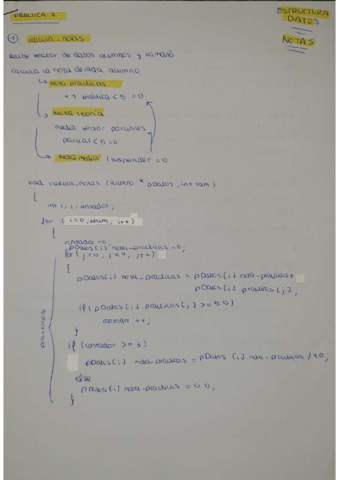 PRACTICA 7
ESTRUCTURA
DATOS
NOTAS
① calcula_notas
Recibe vector de datos alumnos y tamaño
calcula la nota de cada alumno
↳ nota practicas
+ 1 práctica < 5 = 0
↳ nota teoria
media vector parciales
parcial < 5 = 0
↳ nota media (suspender = 0
void calcula_notas (alumno * pDatos, int tam)
{
int i, j, contador;
for (i=0; i<tam; i++)
{
contador = 0;
pDatos[i].nota-practicas = 0;
for (j=0; j<4; j++)
{
pDatos[i].nota-practicas = pDatos[i].nota-practicas +
pDatos[i].practicas[j];
if (pDatos[i].practicas[j] >= 5.0)
contador ++;
}
if (contador >= 3)
pDatos[i].nota-practicas = pDatos[i].nota-practicas / 4.0;
else
pDatos[i].nota-practicas = 0.0;
}
PRACTICAS